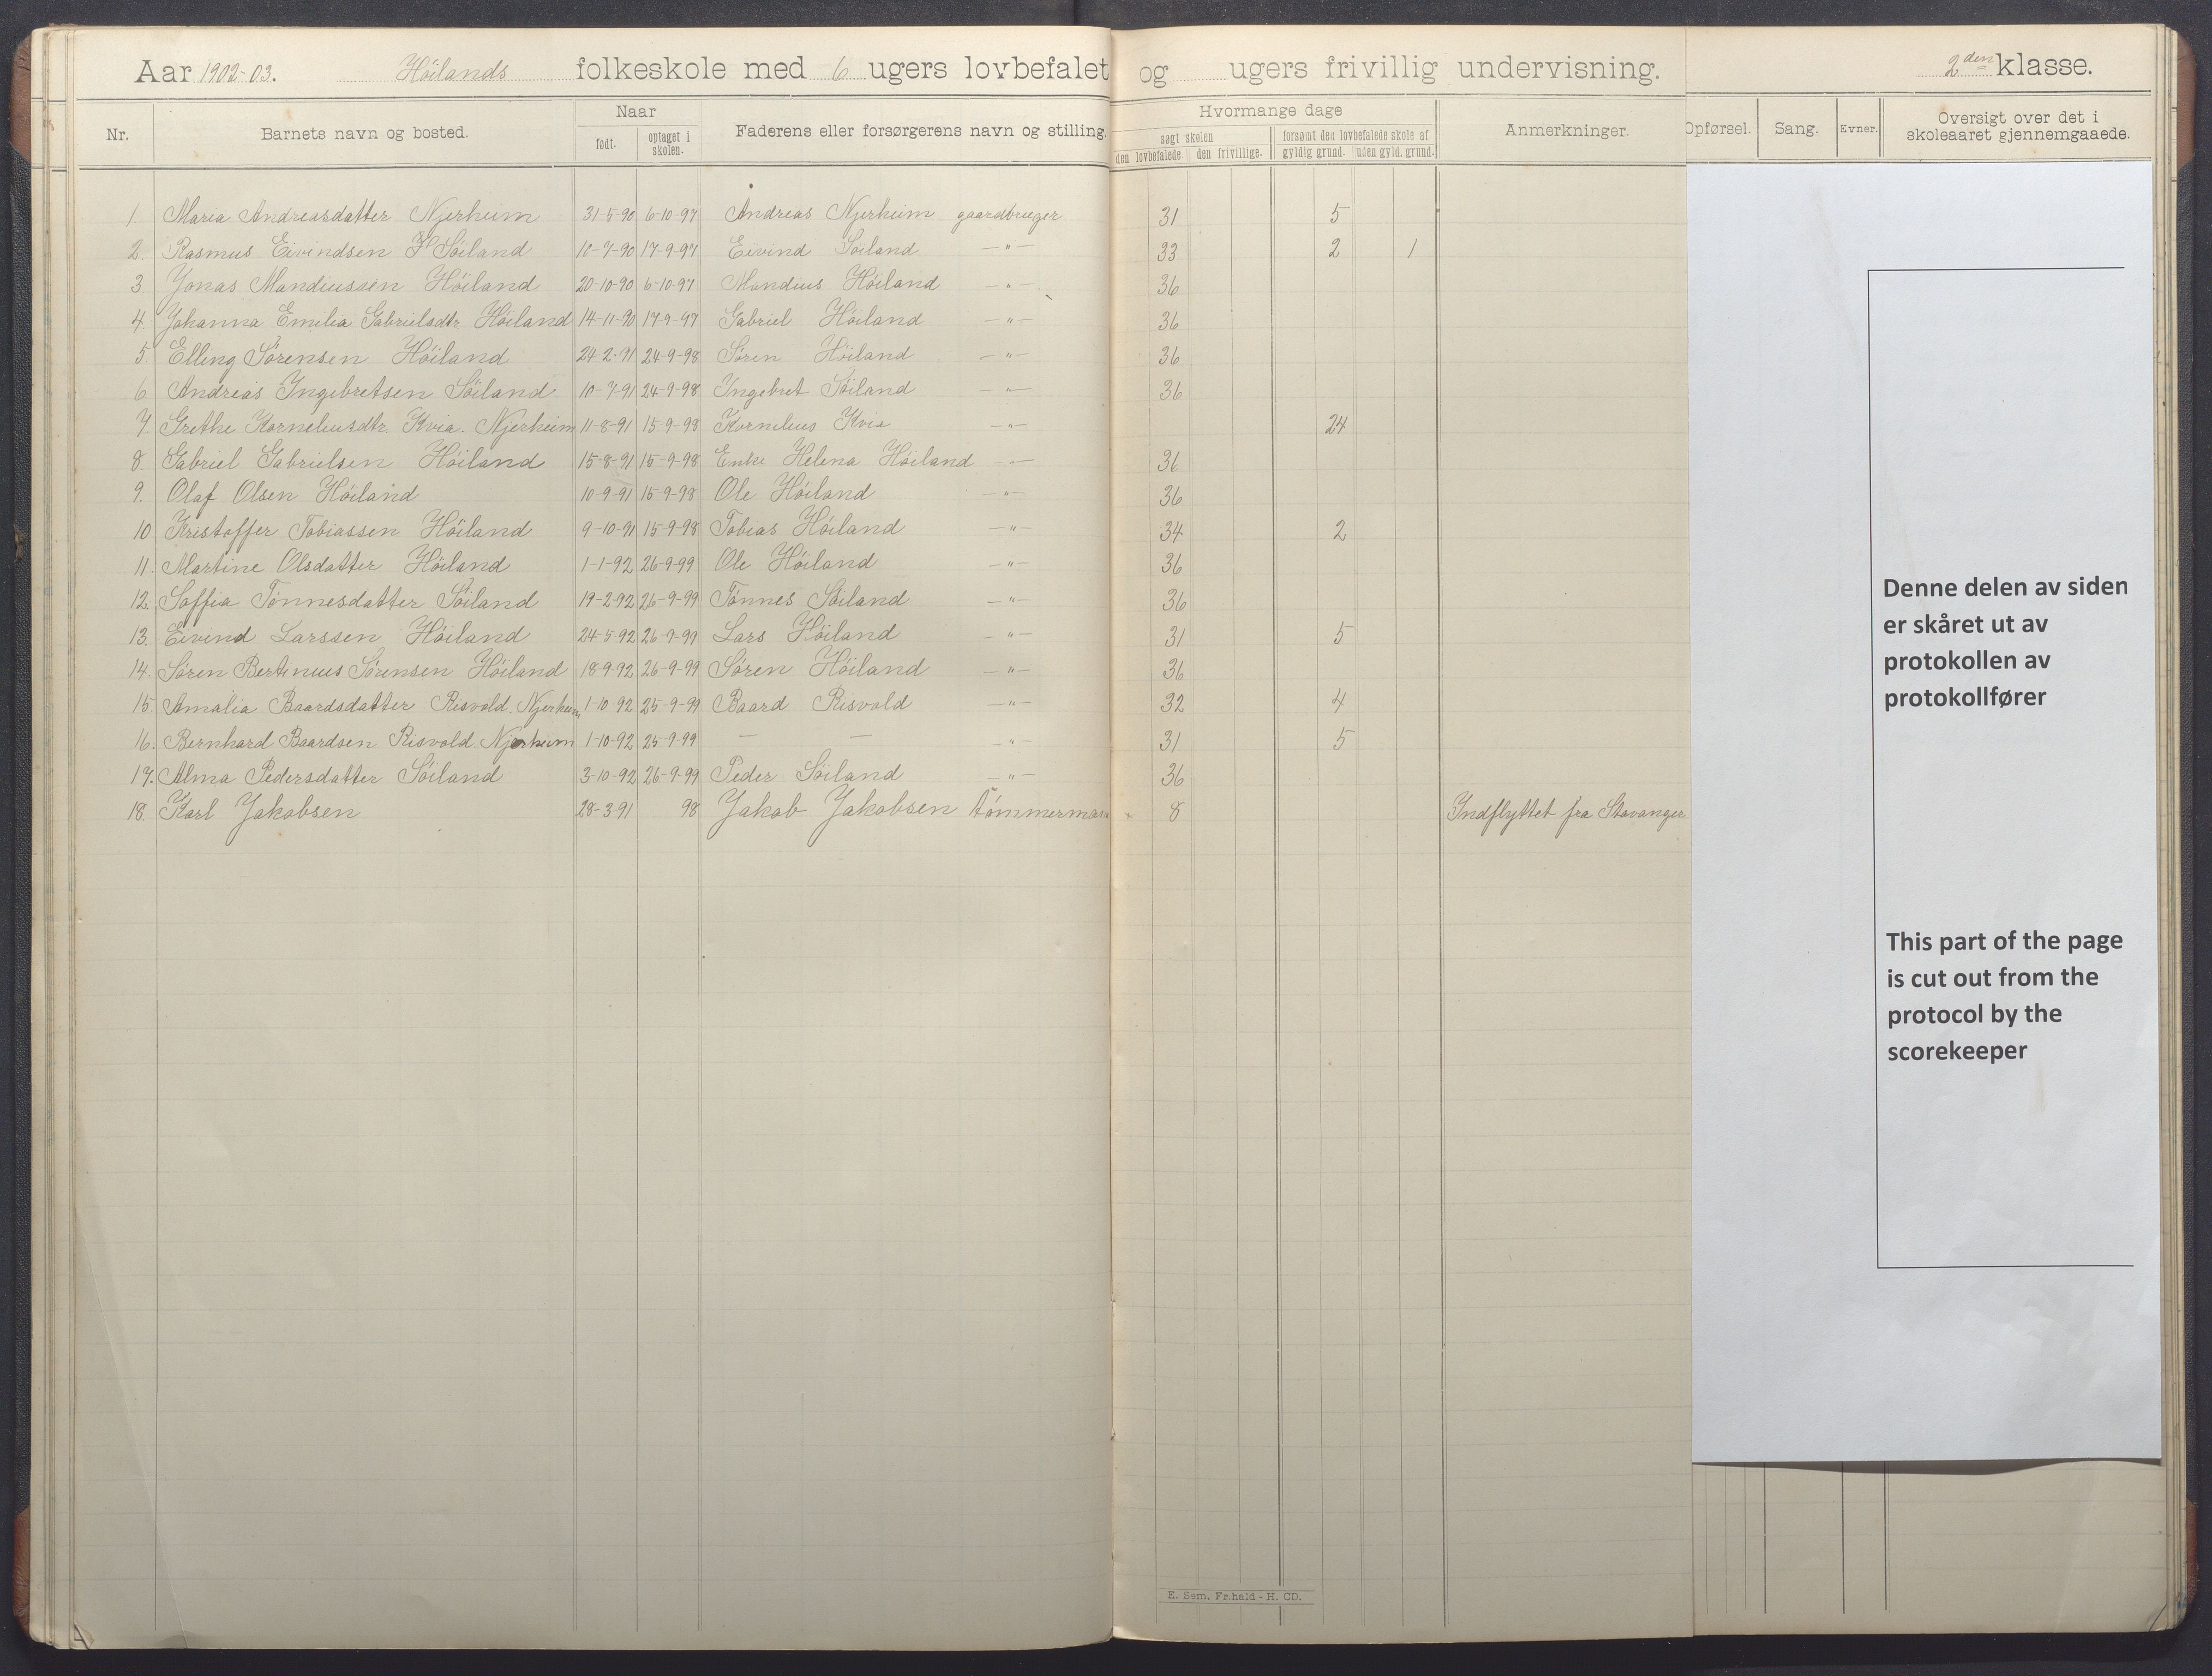 Aar 1902-03. Höilands folkeskole med 6 ugers lovbefalet og ugers frivillig undervisning. 2den klasse.
Nr. Barnets navn og bosted. Naar født. optaget i skolen. Faderens eller forsørgerens navn og stilling. Hvormange dage søgt skolen den lovbefalede den frivillige. forsømt den lovbefalede skole af gyldig grund. uden gyld. grund. Anmerkninger. Opførsel. Sang. Evner. Oversigt over det i skoleaaret gjennemgaaede.
1. Maria Andreasdatter Njerheim 31-5-90 6-10-97 Andreas Njerheim gaardbruger 31 5
2. Rasmus Eivindsen Söiland 10-7-90 17-9-97 Eivind Söiland —"— 33 2 1
3. Jonas Mandiussen Höiland 20-10-90 6-10-97 Mandius Höiland —"— 36
4. Johanna Emilia Gabrielsdtr. Höiland 14-11-90 17-9-97 Gabriel Höiland —"— 36
5. Elling Sörensen Höiland 24-2-91 24-9-98 Sören Höiland —"— 36
6. Andreas Ingebretsen Söiland 10-7-91 24-9-98 Ingebret Söiland —"— 36
7. Grethe Korneliusdtr. Kvia. Njerheim 11-8-91 15-9-98 Kornelius Kvia —"— 24
8. Gabriel Gabrielsen Höiland 15-8-91 15-9-98 Enke Helena Höiland —"— 36
9. Olaf Olsen Höiland 10-9-91 15-9-98 Ole Höiland —"— 36
10. Kristoffer Tobiassen Höiland 9-10-91 15-9-98 Tobias Höiland —"— 34 2
11. Martine Olsdatter Höiland 1-1-92 26-9-99 Ole Höiland —"— 36
12. Soffia Tönnesdatter Söiland 19-2-92 26-9-99 Tönnes Söiland —"— 36
13. Eivind Larssen Höiland 24-5-92 26-9-99 Lars Höiland —"— 31 5
14. Sören Bertinius Sörensen Höiland 18-9-92 26-9-99 Sören Höiland —"— 36
15. Amalia Baardsdatter Risvold. Njerheim 1-10-92 25-9-99 Baard Risvold —"— 32 4
16. Bernhard Baardsen Risvold Njerheim 1-10-92 25-9-99 — — —"— 31 5
17. Alma Pedersdatter Söiland 3-10-92 26-9-99 Peder Söiland —"— 36
18. Karl Jakobsen 28-3-91 98 Jakob Jakobsen tömmermann 8 Indflyttet fra Stavanger
Denne delen av siden
er skåret ut av
protokollen av
protokollfører
This part of the page
is cut out from the
protocol by the
scorekeeper
E. Sem, Fr.hald - H. CD.